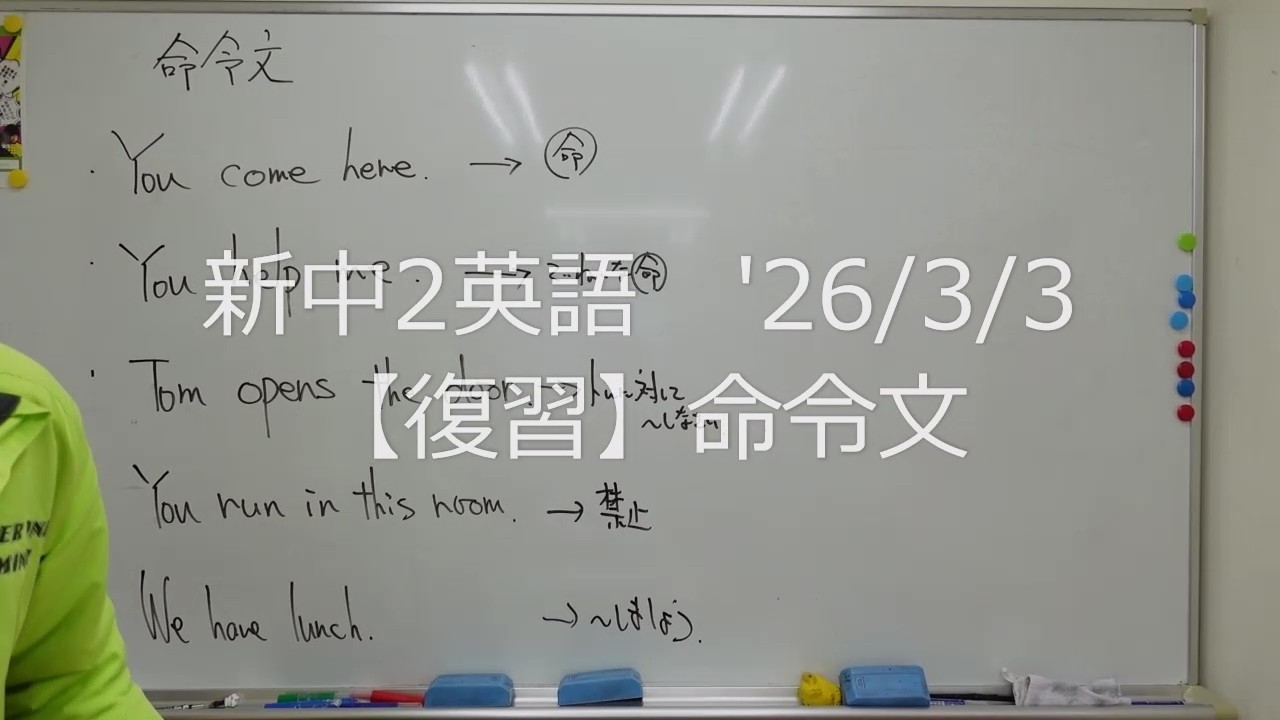 命令文
・You come here. → ㊗命
・You help me. → ていねいな命
新中2英語 '26/3/3
・Tom opens the door. → トムに対して
~しなさい
【復習】命令文
You run in this room. → 禁止
We have lunch. → ~しましょう.